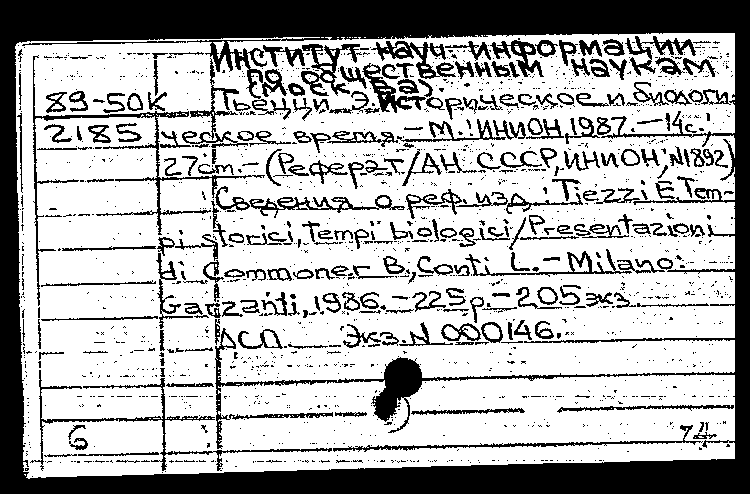 Институт науч. информации
по общественным наукам
(Москва).
89-50К Тьецци Э. Историческое и биологи-
2185 ческое время. – М.: ИНИОН, 1987. – 14с.;
27cm. – (Реферат/АН СССР, ИНИОН; N1892)
Сведения о реф. изд.: Tiezzi E. Tem-
pi storici, Tempi biologici/Presentazioni
di Commoner B., Conti L. – Milano:
Garzanti, 1986. – 225p. – 205экз
ДСП Экз. N 000146.
6